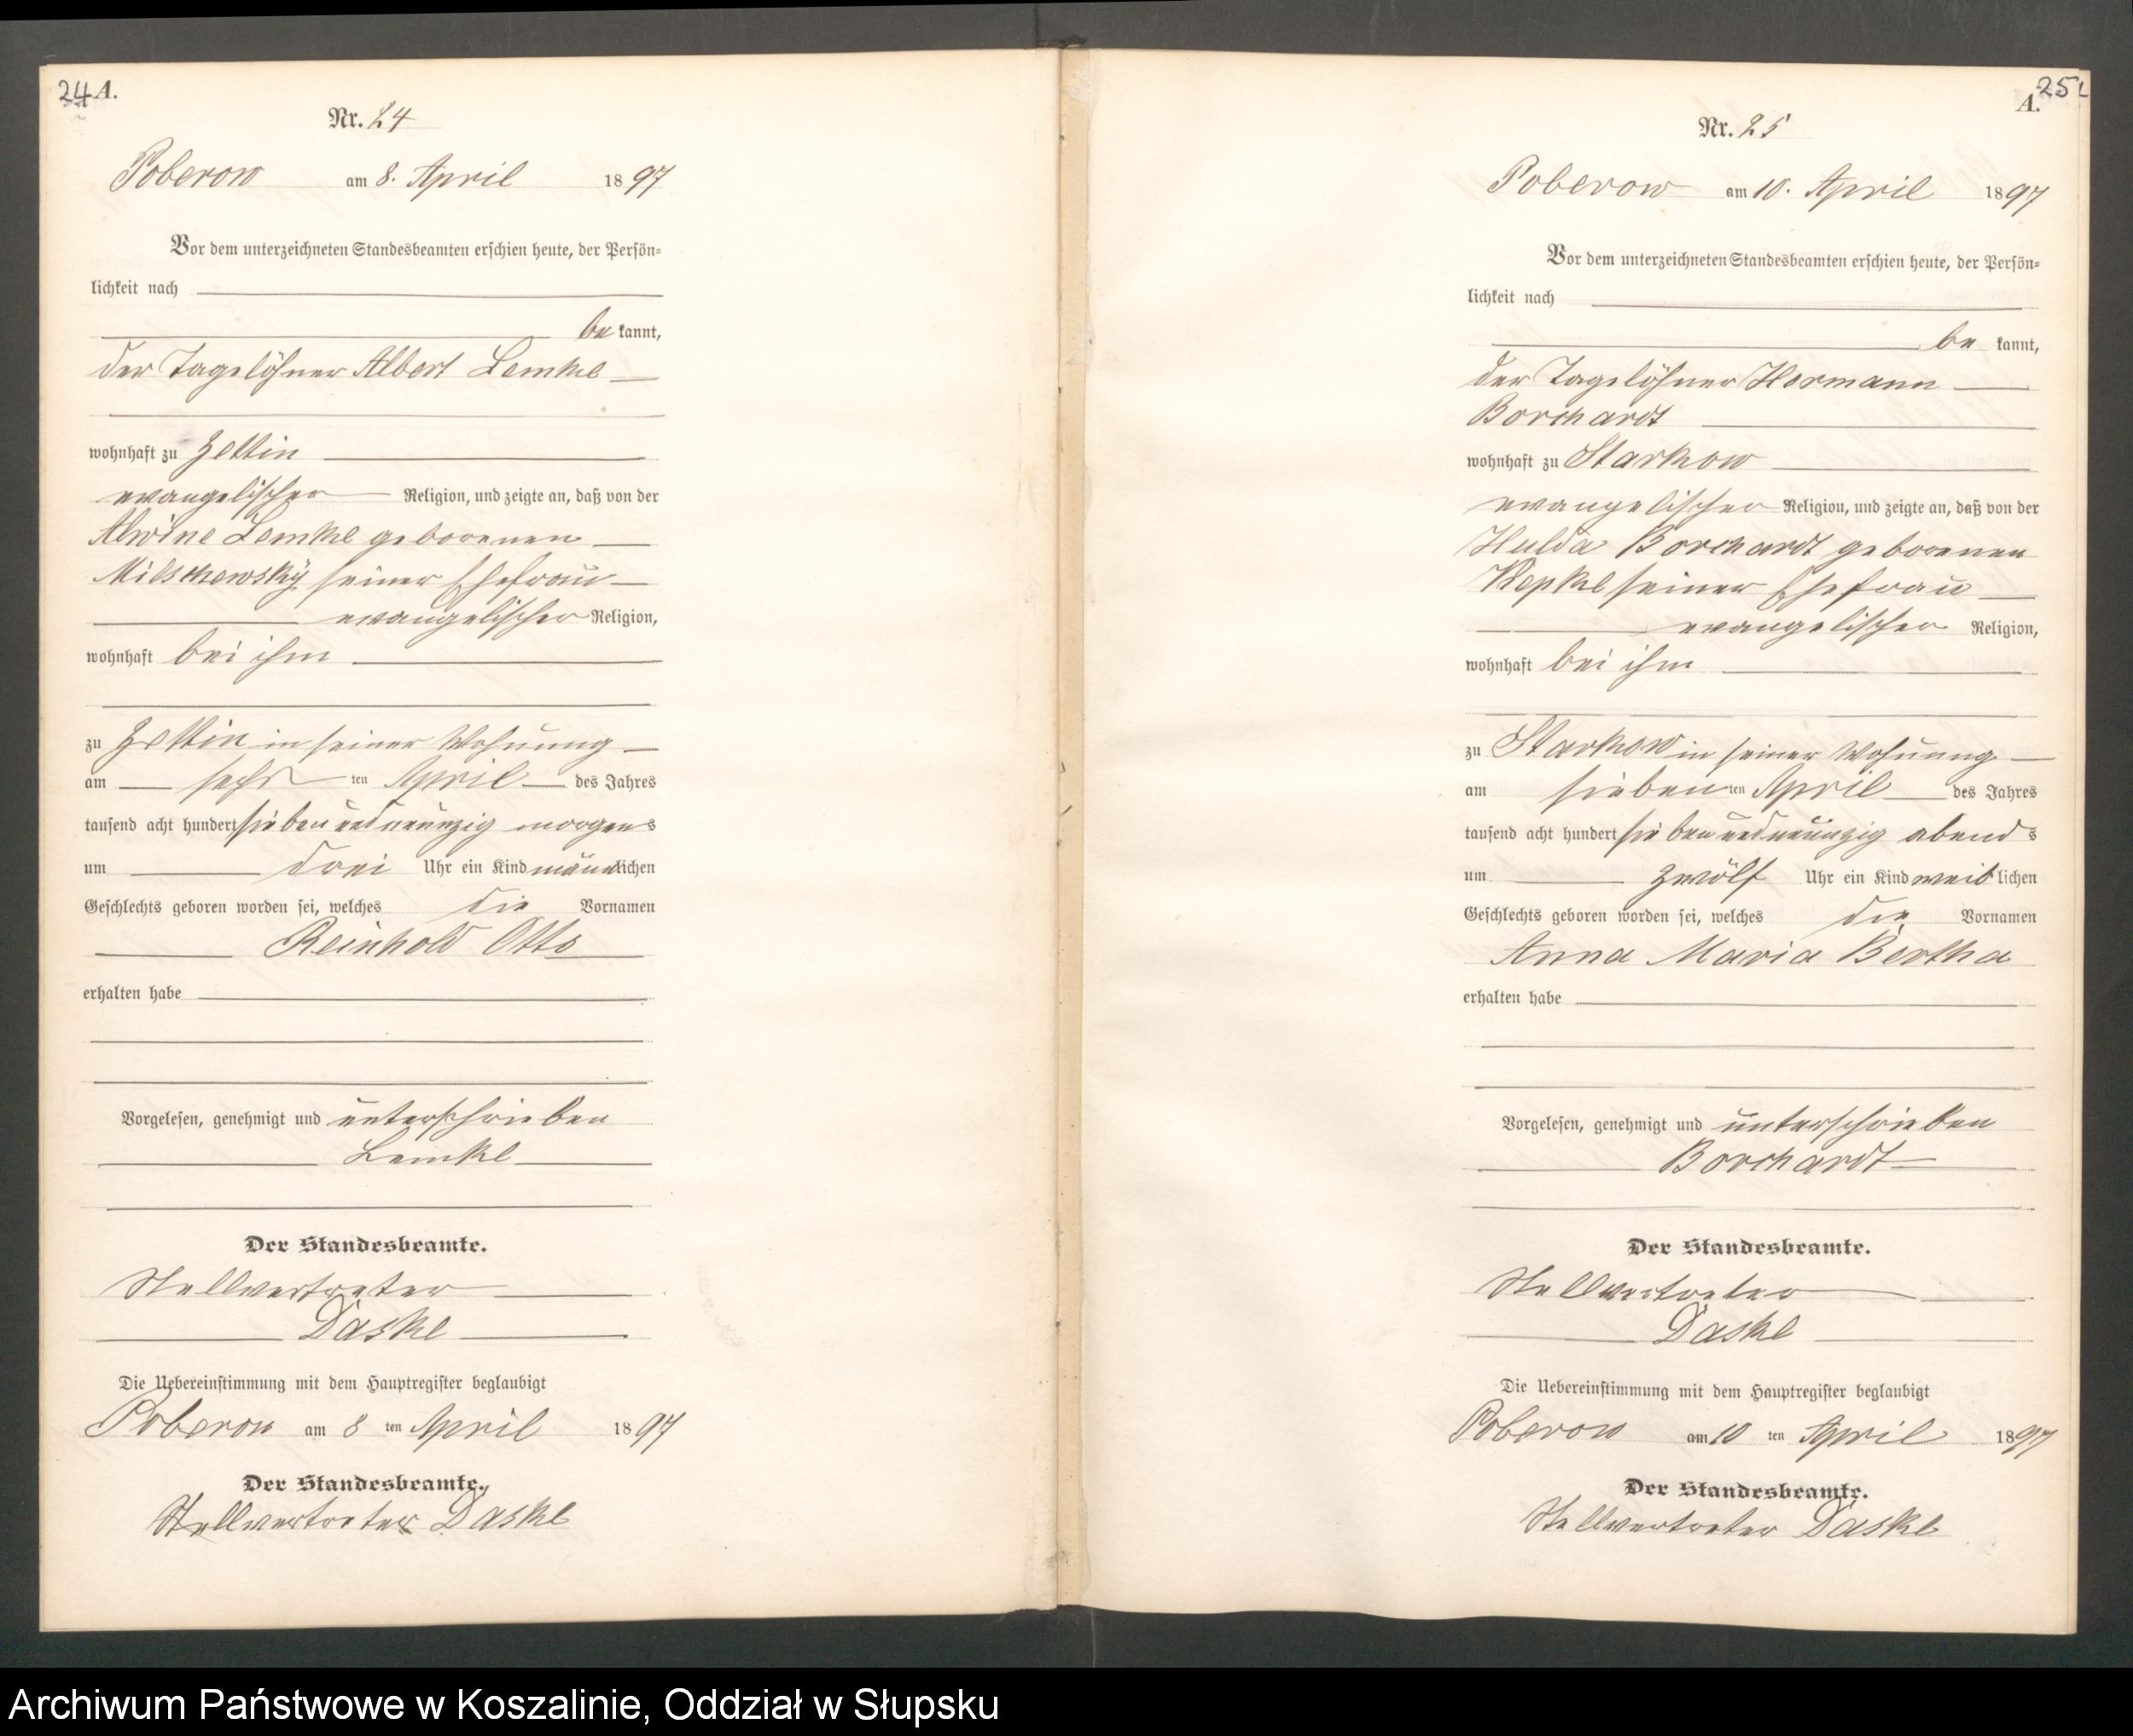 24 A.
Nr. 24
Poberow am 8. April 1897
Vor dem unterzeichneten Standesbeamten erschien heute, der Persön-
lichkeit nach
be kannt,
der Tagelöhner Albert Lemke
wohnhaft zu Zettin
evangelischer Religion, und zeigte an, daß von der
Alwine Lemke geborenen
seiner Ehefrau
evangelischer Religion,
wohnhaft bei ihm
zu Zettin in seiner Wohnung
am sechs ten April des Jahres
tausend acht hundert sieben und neunzig morgens
um drei Uhr ein Kind männlichen
Geschlechts geboren worden sei, welches die Vornamen
Reinhold Otto
erhalten habe
Vorgelesen, genehmigt und unterschrieben
Lemke
Der Standesbeamte.
Stellvertreter
Daske
Die Uebereinstimmung mit dem Hauptregister beglaubigt
Poberow am 8 ten April 1897
Der Standesbeamte.
Stellvertreter Daske
A. 25
Nr. 25
Poberow am 10. April 1897
Vor dem unterzeichneten Standesbeamten erschien heute, der Persön-
lichkeit nach
be kannt,
der Tagelöhner Hermann
Borchardt
wohnhaft zu Starkow
evangelischer Religion, und zeigte an, daß von der
Hulda Borchardt geborenen
seiner Ehefrau
evangelischer Religion,
wohnhaft bei ihm
zu Starkow in seiner Wohnung
am sieben ten April des Jahres
tausend acht hundert sieben und neunzig abends
um zwölf Uhr ein Kind weiblichen
Geschlechts geboren worden sei, welches die Vornamen
Anna Maria Bertha
erhalten habe
Vorgelesen, genehmigt und unterschrieben
Borchardt
Der Standesbeamte.
Stellvertreter
Daske
Die Uebereinstimmung mit dem Hauptregister beglaubigt
Poberow am 10 ten April 1897
Der Standesbeamte.
Stellvertreter Daske
Archiwum Państwowe w Koszalinie, Oddział w Słupsku